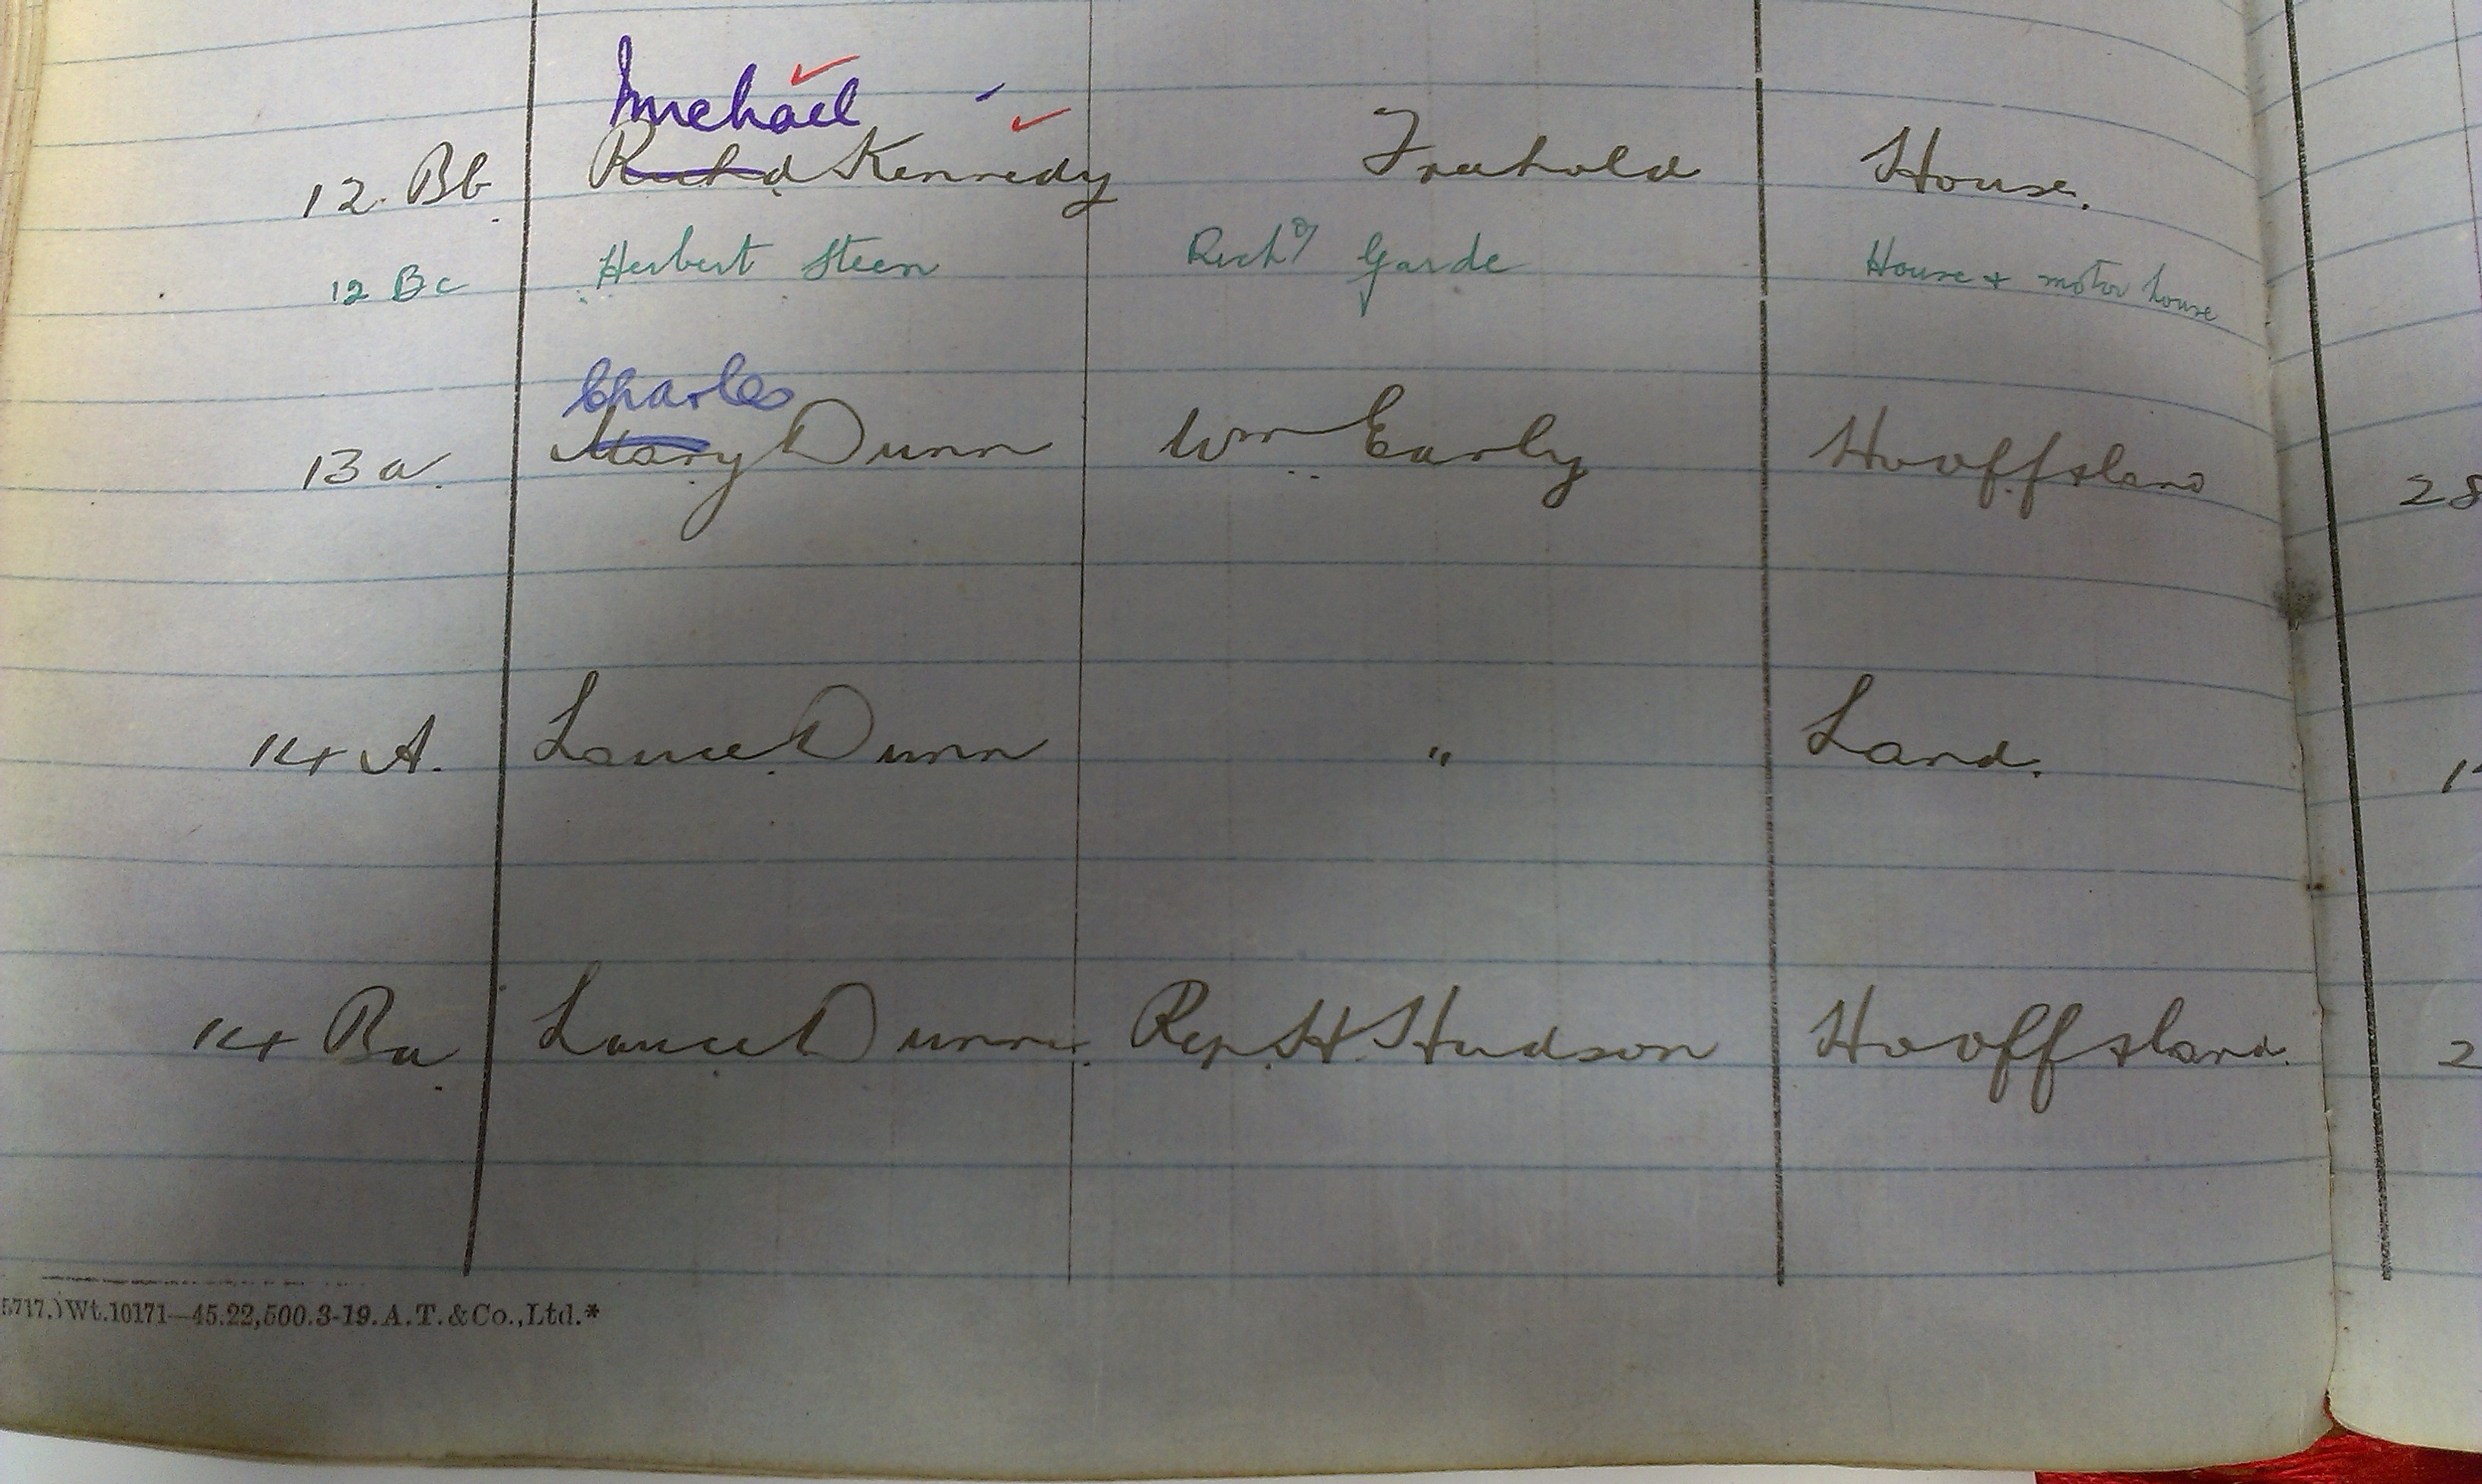 Michael
12. Bb. Richd Kennedy Freehold House.
12 Bc Herbert Steen Richd Garde House & motor house
Charles
13 a. Mary Dunn Wm Early Ho off & land 28
14 A. Lance Dunn " Land.
14 Ba. Lance Dunn. Rep. H. Hudson Ho off & land. 2
5717.) Wt. 10171—45.22,500.3-19. A. T. & Co., Ltd.*